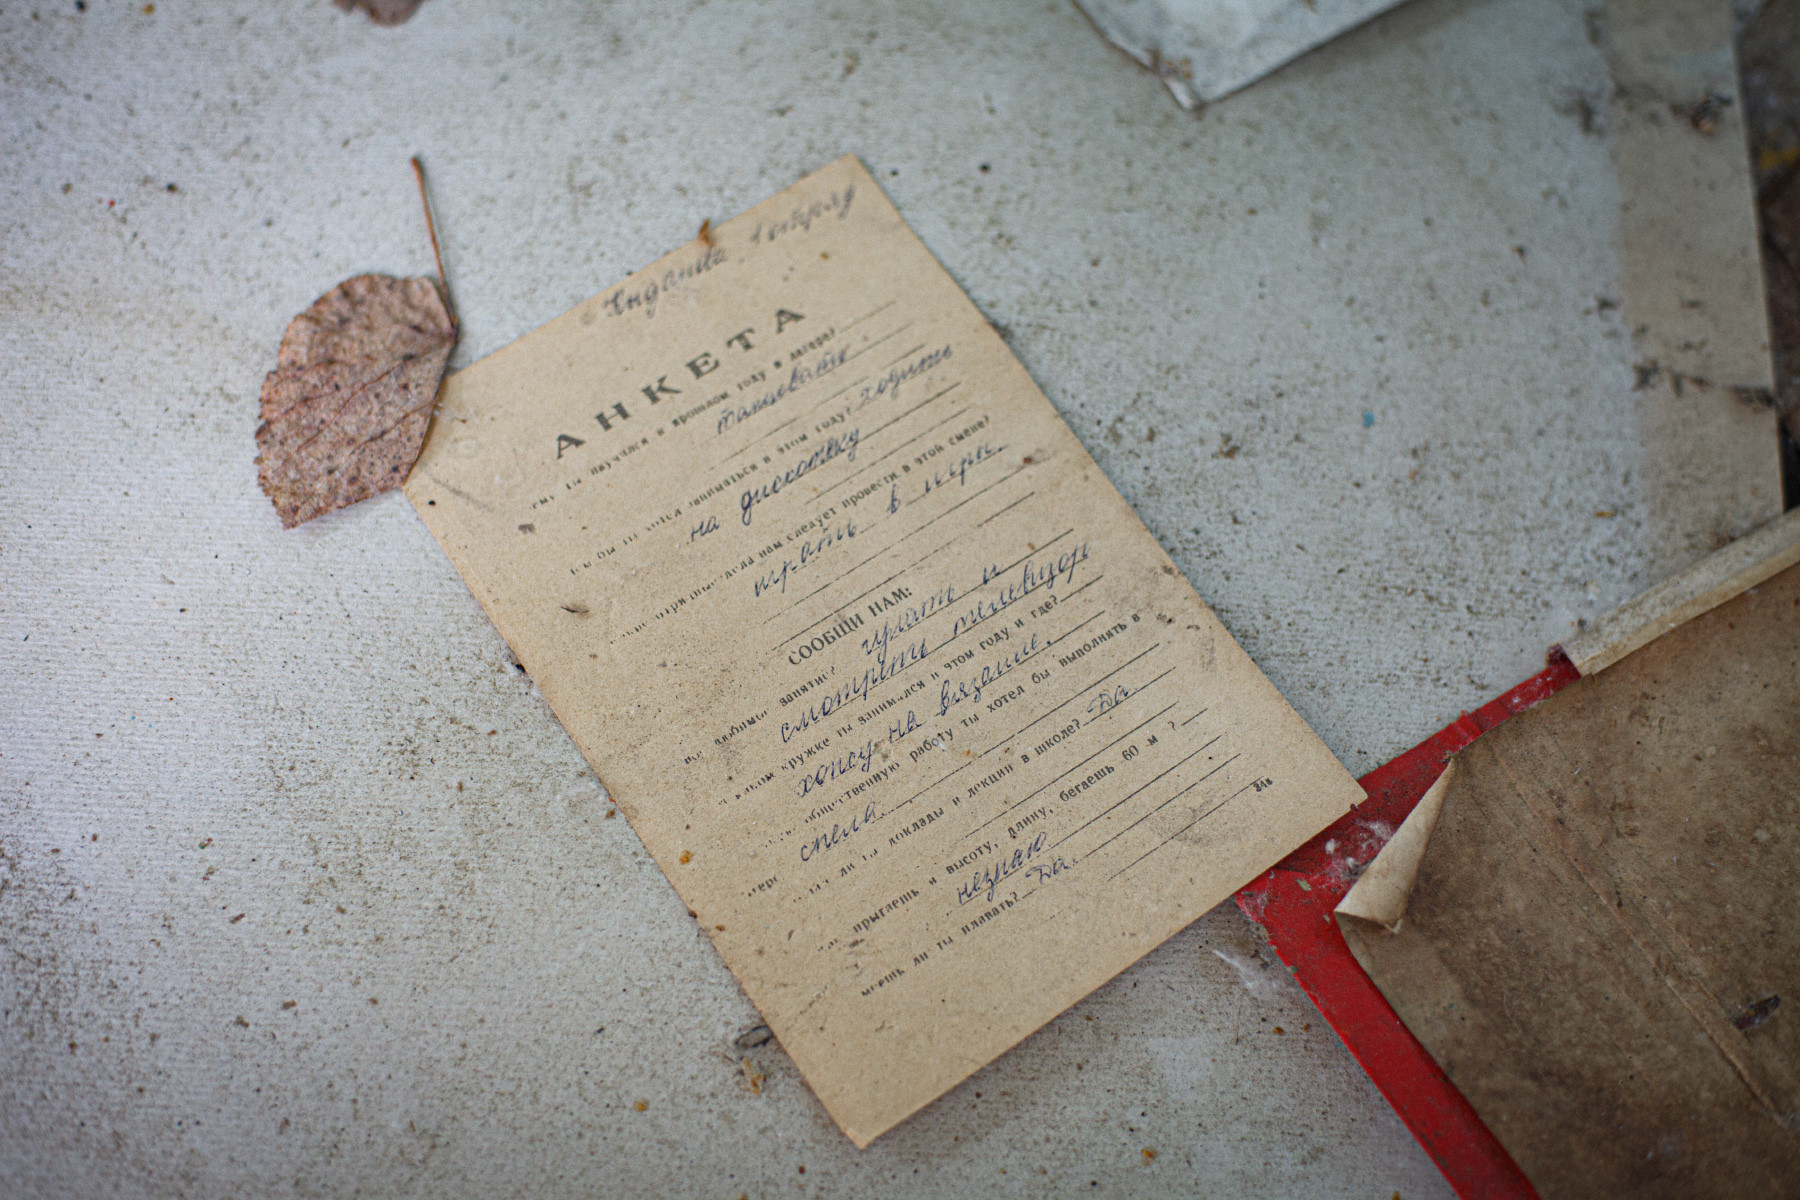 1 отряд
АНКЕТА
ты научился в прошлом году в лагере?
танцевать
бы ты хотел заниматься в этом году? ходить
на дискотеку
дела нам следует провести в этой смене?
играть в игры.
СООБЩИ НАМ:
любимое занятие? гулять и
смотреть телевизор
В каком кружке ты занимался в этом году и где?
хожу на вязание.
общественную работу ты хотел бы выполнять в
лагере спела.
ли ты доклады и лекции в школе? Да.
прыгаешь в высоту, длину, бегаешь 60 м ?
незнаю
Умеешь ли ты плавать? Да.